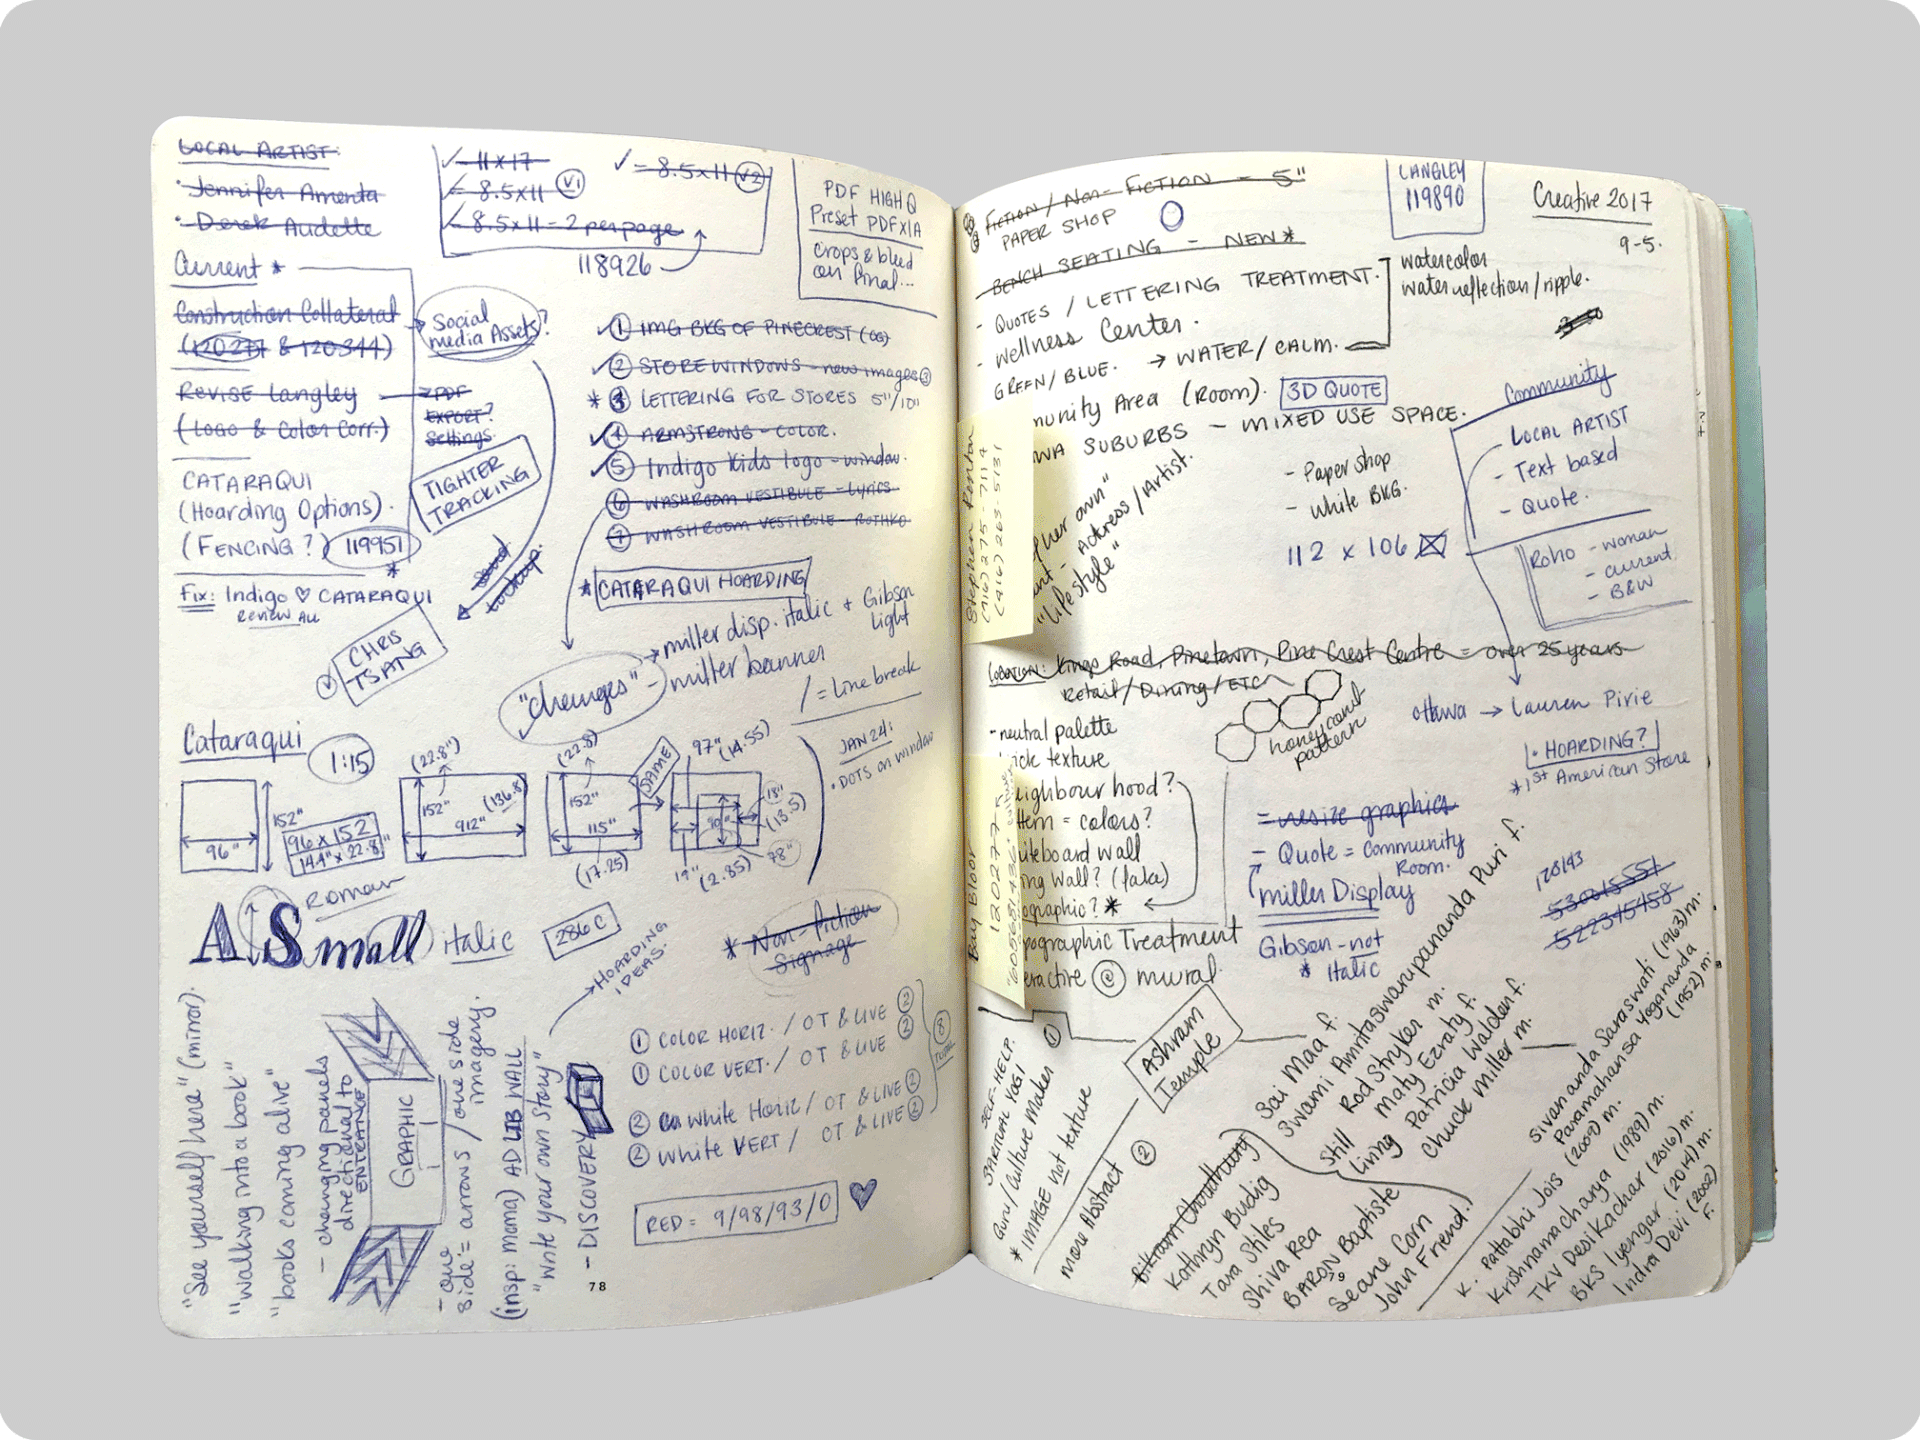 LOCAL ARTIST:
· Jennifer Amenta
· Derek Audette
Current *
Construction Collateral
(120277 & 120344)
Revise Langley
(Logo & Color Corr.)
PDF
EXPORT?
Settings.
CATARAQUI
(Hoarding Options).
(FENCING?) 119951
*
Fix: Indigo ♡ CATARAQUI
REVIEW ALL
Social
media Assets?
TIGHTER
TRACKING
CHRIS
TSANG
✓
✓ 11x17
✓ 8.5x11 V1
✓ 8.5x11 = 2 per page
✓ = 8.5x11 V2
118926
PDF HIGH Q
Preset PDFX1A
crops & bleed
on final...
✓ 1 IMG BKG OF PINECREST
✓ 2 STORE WINDOWS - new images 3
* 3 LETTERING FOR STORES 5"/10"
✓ 4 ARMSTRONG - COLOR.
✓ 5 Indigo Kids logo - window.
6 WASHROOM VESTIBULE - LYRICS
7 WASHROOM VESTIBULE - ROTHKO
* CATARAQUI HOARDING
"changes"
→ miller disp. italic + Gibson
Light
- miller banner
/ = Line break
JAN 24:
· DOTS on window
Cataraqui 1:15
152"
96"
96 x 152
14.4" x 22.8"
(22.8")
152"
912" (136.8)
(22.8)
152"
115"
(17.25)
SAME
97" (14.55)
18"
(13.5)
90"
19" (2.85) 78"
ROMAN
A Small italic
286C
→ HOARDING
IDEAS.
* Non-fiction
Signage
"See yourself here" (mirror).
"walking into a book"
"books coming alive"
- changing panels
directional to
ENTRANCE
GRAPHIC
- one
side = arrows / one side
imagery.
(insp: moma) AD LIB WALL
"write your own story"
- DISCOVERY
1 COLOR HORIZ. / OT & LIVE 2
1 COLOR VERT. / OT & LIVE 2
2 White Horiz / OT & LIVE 2
2 White VERT / OT & LIVE 2
8
TOTAL
RED = 9/98/93/0
78
Fiction / Non-Fiction - 5"
PAPER SHOP
BENCH SEATING - NEW*
- QUOTES / LETTERING TREATMENT.
- Wellness Center.
GREEN/BLUE. → WATER/CALM.
watercolor
water reflection/ripple.
LANGLEY
119890
Creative 2017
9-5.
munity Area (Room). 3D QUOTE
WA SUBURBS - MIXED USE SPACE.
- Paper shop
- White BKG.
112 x 106
Community
- LOCAL ARTIST
- Text based
- Quote.
Roho - woman
- current
- B&W
Stephen Renton
(416) 275-7114
(416) 263-5131
of her own"
- Actress/Artist.
"Lifestyle"
Location: Kings Road, Pinetown, Pine Crest Centre = over 25 years
Retail/Dining/ETC
honeycomb
pattern
Ottawa → Lauren Pirie
· HOARDING?
* 1st American Store
- neutral palette
ick texture
eighbourhood?
ttern = colors?
iteboard wall
ing wall? (fake)
ographic? *
pographic Treatment
eractive @ mural.
Bay Bloor
120277
= resize graphics
- Quote = Community
Room.
miller Display
Gibson - not
* italic
128143
530615551
522345458
Ashram
Temple
SELF-HELP.
SPIRITUAL YOGI
Guru/Culture Maker 1
* IMAGE not texture
more Abstract 2
Sai Maa f.
Swami Amritaswarupananda Puri f.
Still
living
Rod Stryker m.
Maty Ezraty f.
Patricia Walden f.
Chuck Miller m.
Bikram Choudhury
Kathryn Budig
Tara Stiles
Shiva Rea
BARON Baptiste
Seane Corn
John Friend.
Sivananda Saraswati (1963) m.
Paramahansa Yogananda
(1952) m.
K. Pattabhi Jois (2009) m.
Krishnamacharya (1989) m.
TKV Desikachar (2016) m.
BKS Iyengar (2014) m.
Indra Devi (2002)
F.
79